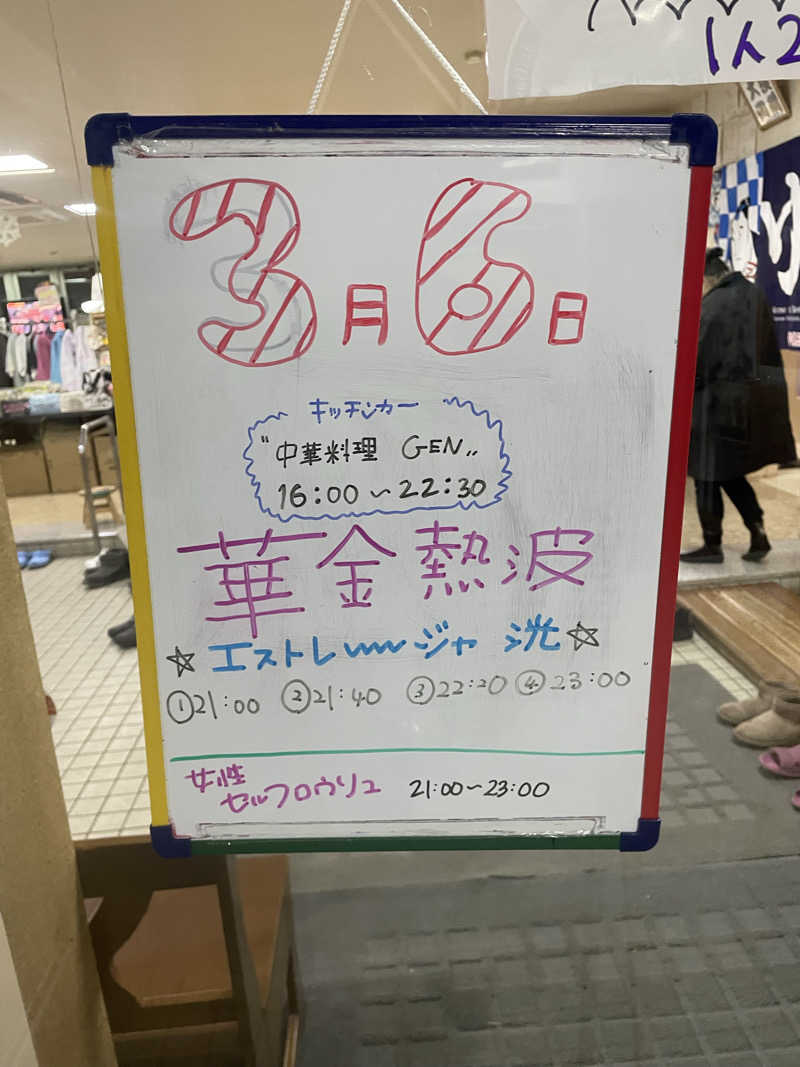 1人2
3月6日
キッチンカー
"中華料理 GEN"
16:00~22:30
華金熱波
☆エストレ〰ジャ 洸☆
①21:00 ②21:40 ③22:20 ④23:00
女性
セルフロウリュ 21:00~23:00
ゆ